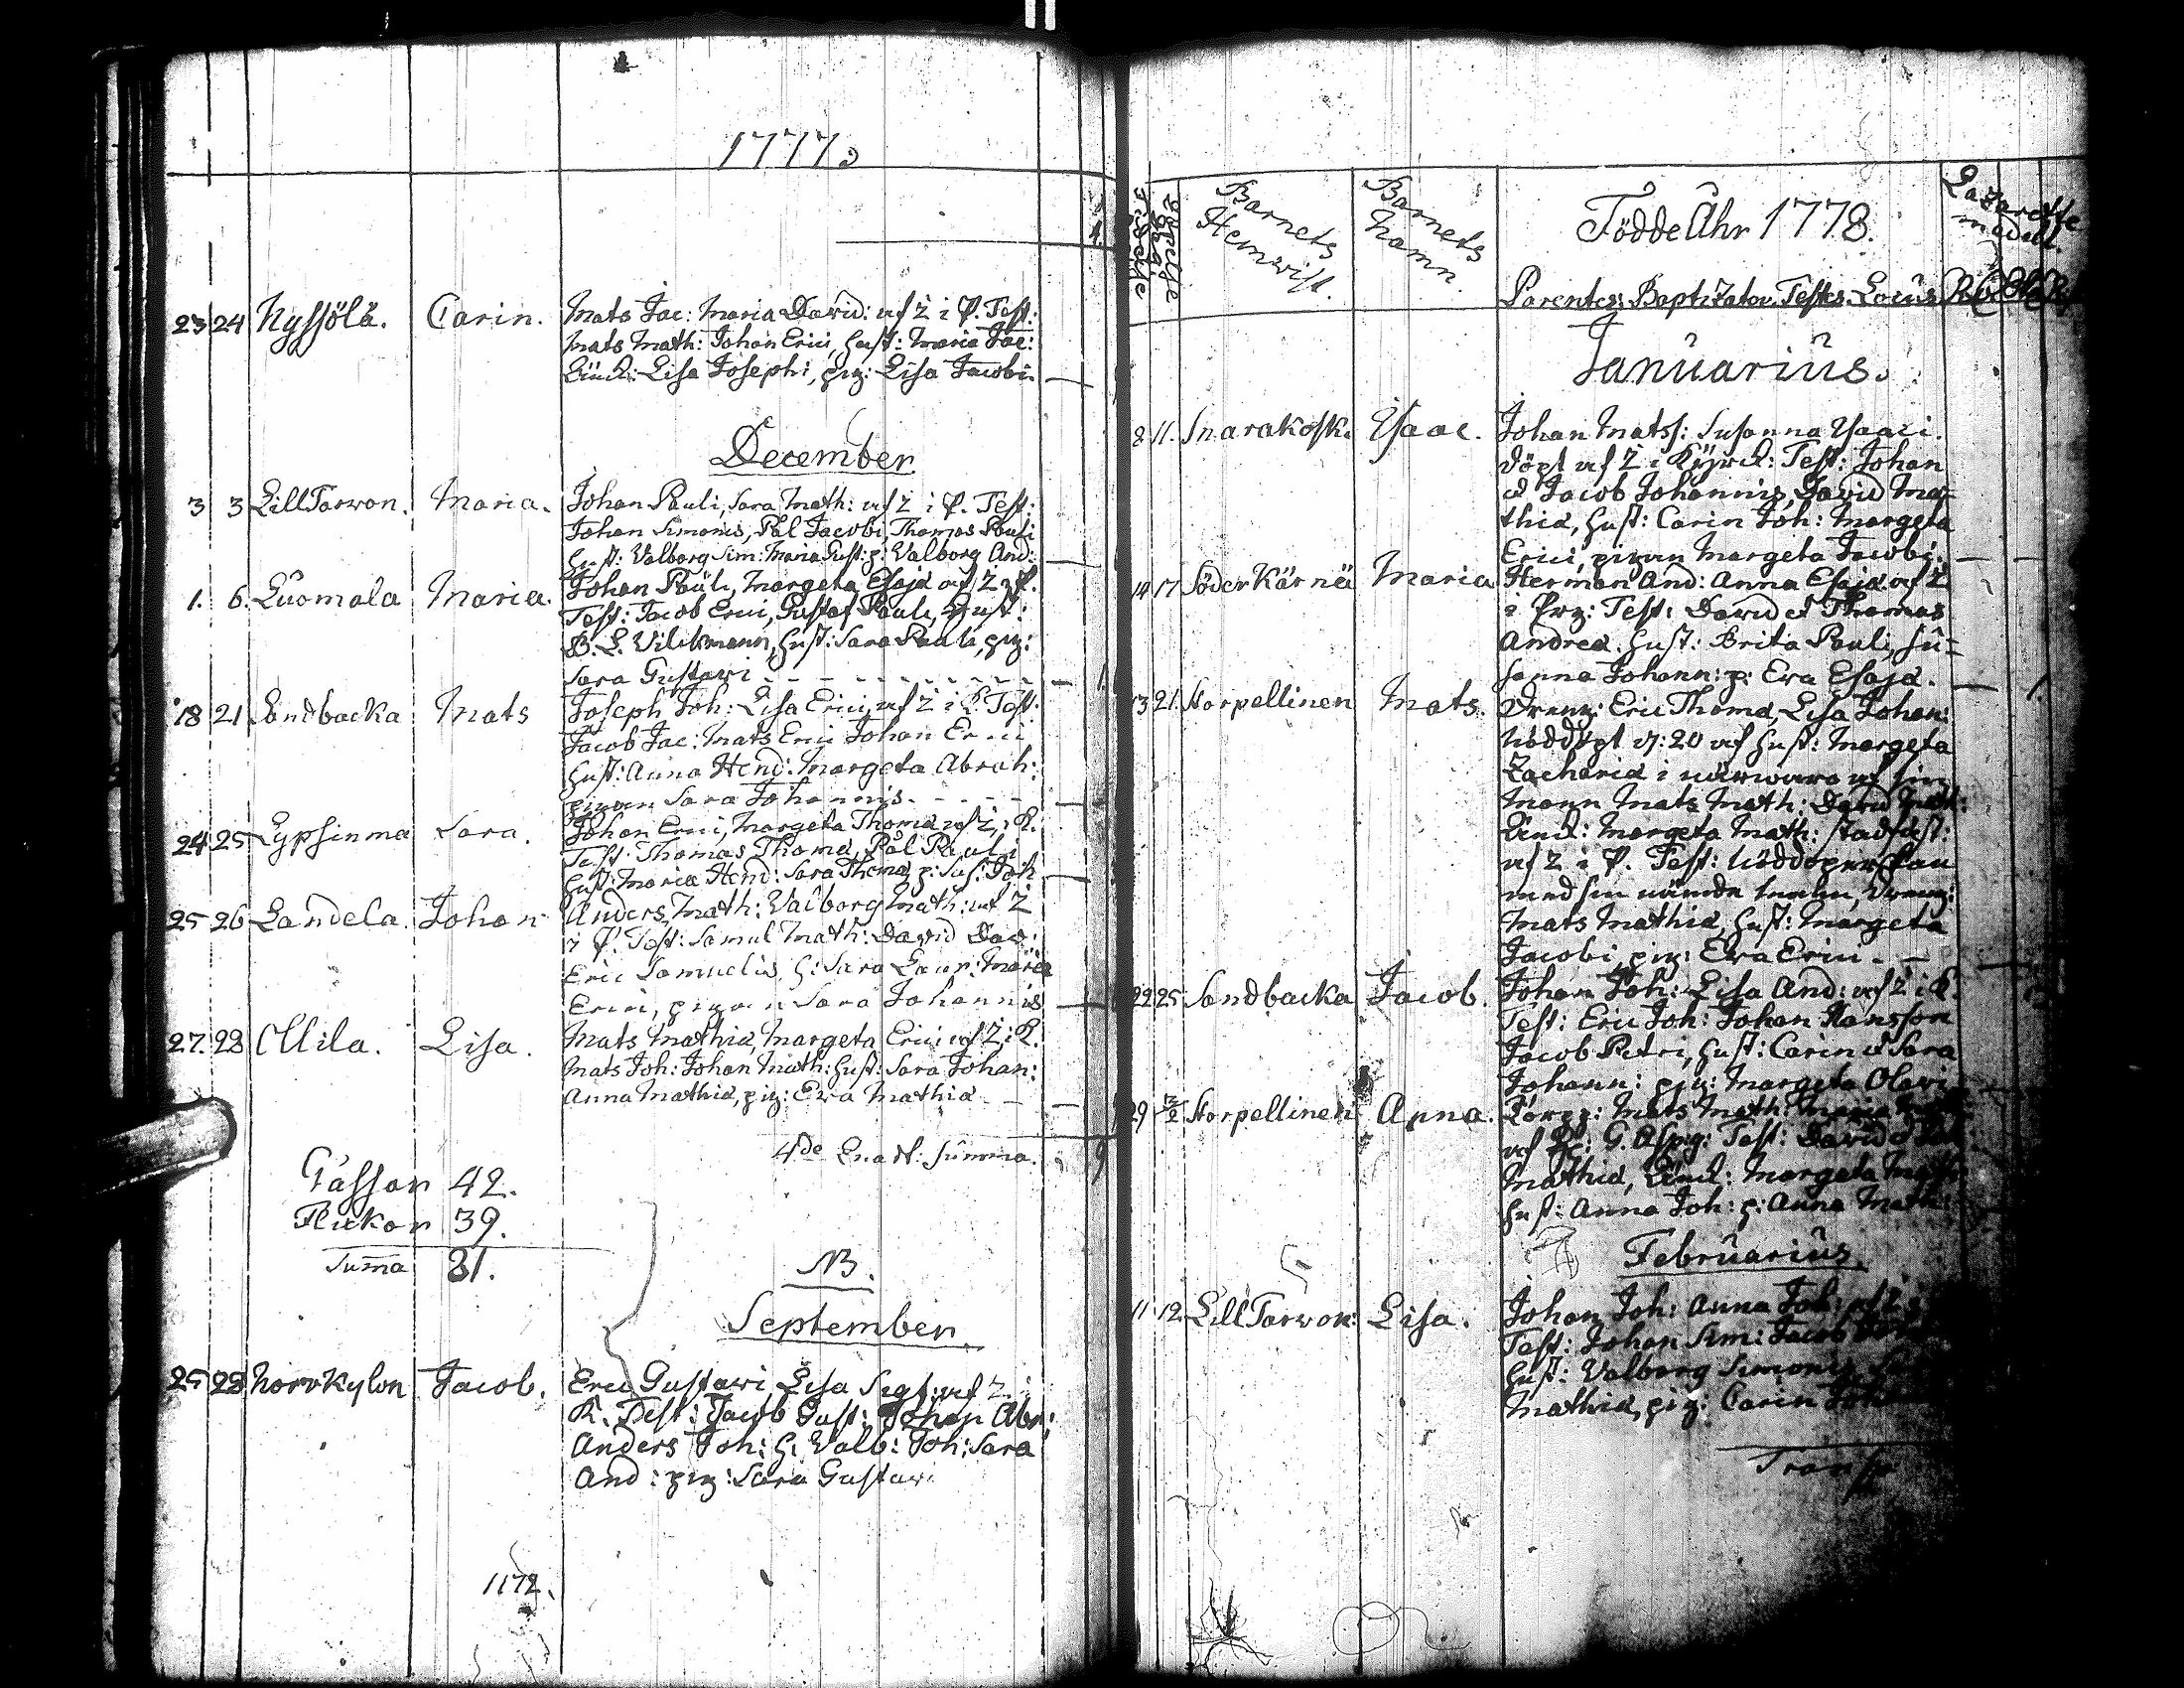 1777.
23 24 Nyssölä. Carin. Mats Jac: Maria David: af Z i P. Test:
Mats Math: Johan Erici, Hust: Maria Jac:
Änck: Lisa Joseph:, pig: Lisa Jacobi.
December
3 3 LillTarvon. Maria. Johan Pauli, Sara Math: af Z i P. Test:
Johan Simonis, Pål Jacobi, Thomas Pauli
Hust: Valborg Sim: Maria Gust: p: Valborg And:
1. 6. Luomala Maria. Johan Pauli, Margeta Esajæ af Z i P.
Test: Jacob Erici, Gustaf Pauli, Hust:
B. L. Vilckmann, Hust: Sara Pauli, pig:
Sara Gustavi 1.
18 21 Sandbacka Mats Joseph Joh: Lisa Erici af Z i P. Test.
Jacob Jac: Mats Erici Johan Erici
Hust: Anna Hend: Margeta Abrah:
pigan Sara Johannis.
24 25 Lypsinma Sara. Johan Erici, Margeta Thomæ af Z i K.
Test: Thomas Thomæ, Pål Pauli
Hust: Maria Hend: Sara Thomæ p: Sus: Joh
25 26 Landela. Johan Anders Math: Valborg Math: af Z
i P. Test: Samul Math: David Dav:
Eric Samuelis, H: Sara Laur: Maria
Erici, pigan Sara Johannis
27. 28 Ollila. Lisa. Mats Mathiæ, Margeta Erici af Z i K.
Mats Joh: Johan Math: Hust: Sara Johan:
Anna Mathiæ, pig: Eva Mathiæ
4de Summa. 9
Gåssar 42.
Flickor 39.
Suma 81.
NB.
September
25 28 Norrkylon Jacob. Eric Gustavi, Lisa Sigf: af Z i
K. Test: Jacob Gust: Johan Abr:
Anders Joh: H: Valb: Joh: Sara
And: pig: Sara Gustavi
1172.
Födelse Döpelse Barnets Hemvist. Barnets Namn. Födde Åhr 1778. Lazarette medell.
Parentes: Baptizator. Testes. Locus
Januarius.
8 11. Snarakoski Isaac. Johan Matss: Susanna Isaaci.
döpt af Z i Kyrck: Test: Johan
et Jacob Johannis, David Ma=
thiæ, Hust: Carin Joh: Margeta
Erici, pigan Margeta Jacobi.
14 17 SöderKärnä Maria Herman And: Anna Esajæ af Z
i Prg: Test: David et Thomas
Andreæ. Hust: Brita Pauli, Su=
sanna Johann: p: Eva Esajæ. 1.
13 21. Storpellinen Mats. Dreng: Eric Thomæ, Lisa Johan:
Nöddöpt d: 20 af Hust: Margeta
Zachariæ i närwaro af sin
Mann Mats Math: David Math:
Änck: Margeta Math: stadfäst:
af Z i P. Test: Nöddöperskan
med sin nämde Man, Dreng:
Mats Mathiæ, Hust: Margeta
Jacobi, pig: Eva Erici
22 25 Sandbacka Jacob. Johan Joh: Lisa And: af Z i K.
Test: Eric Joh: Johan Hansson
Jacob Petri, Hust: Carin et Sara
Johann: pig: Margeta Olavi
29 1/2 Storpellinen Anna. Torp: Mats Math: Maria
af Test: David et
Mathiæ, Änck: Margeta Math
Hust: Anna Joh: p: Anna Math:
Februarius.
11 12. LillTarvon: Lisa. Johan Joh: Anna Joh: af Z
Test: Johan Sim: Jacob
Hust: Valborg Simonis,
Mathiæ, pig: Carin
Transp